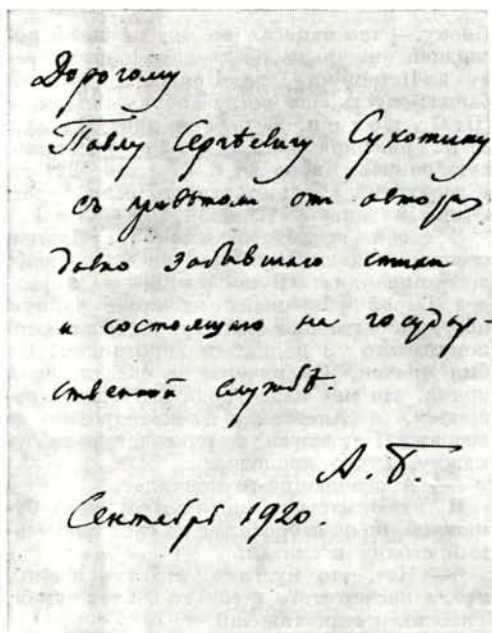 Дорогому
Павлу Сергѣевичу Сухотину
съ привѣтом от автора,
давно забывшаго стихи
и состоящаго на государ-
ственной службѣ.
А. Б.
Сентябрь 1920.